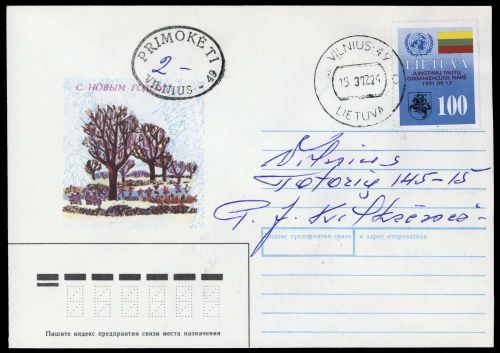 PRIMOKĖTI
2-
VILNIUS - 49
С НОВЫМ ГОДОМ
VILNIUS-49
LIETUVA
LIETUVA
JUNGTINIŲ TAUTŲ
ORGANIZACIJOS NARĖ
1991 09 17
100
Vilnius
145-15
Индекс предприятия связи и адрес отправителя
Пишите индекс предприятия связи места назначения